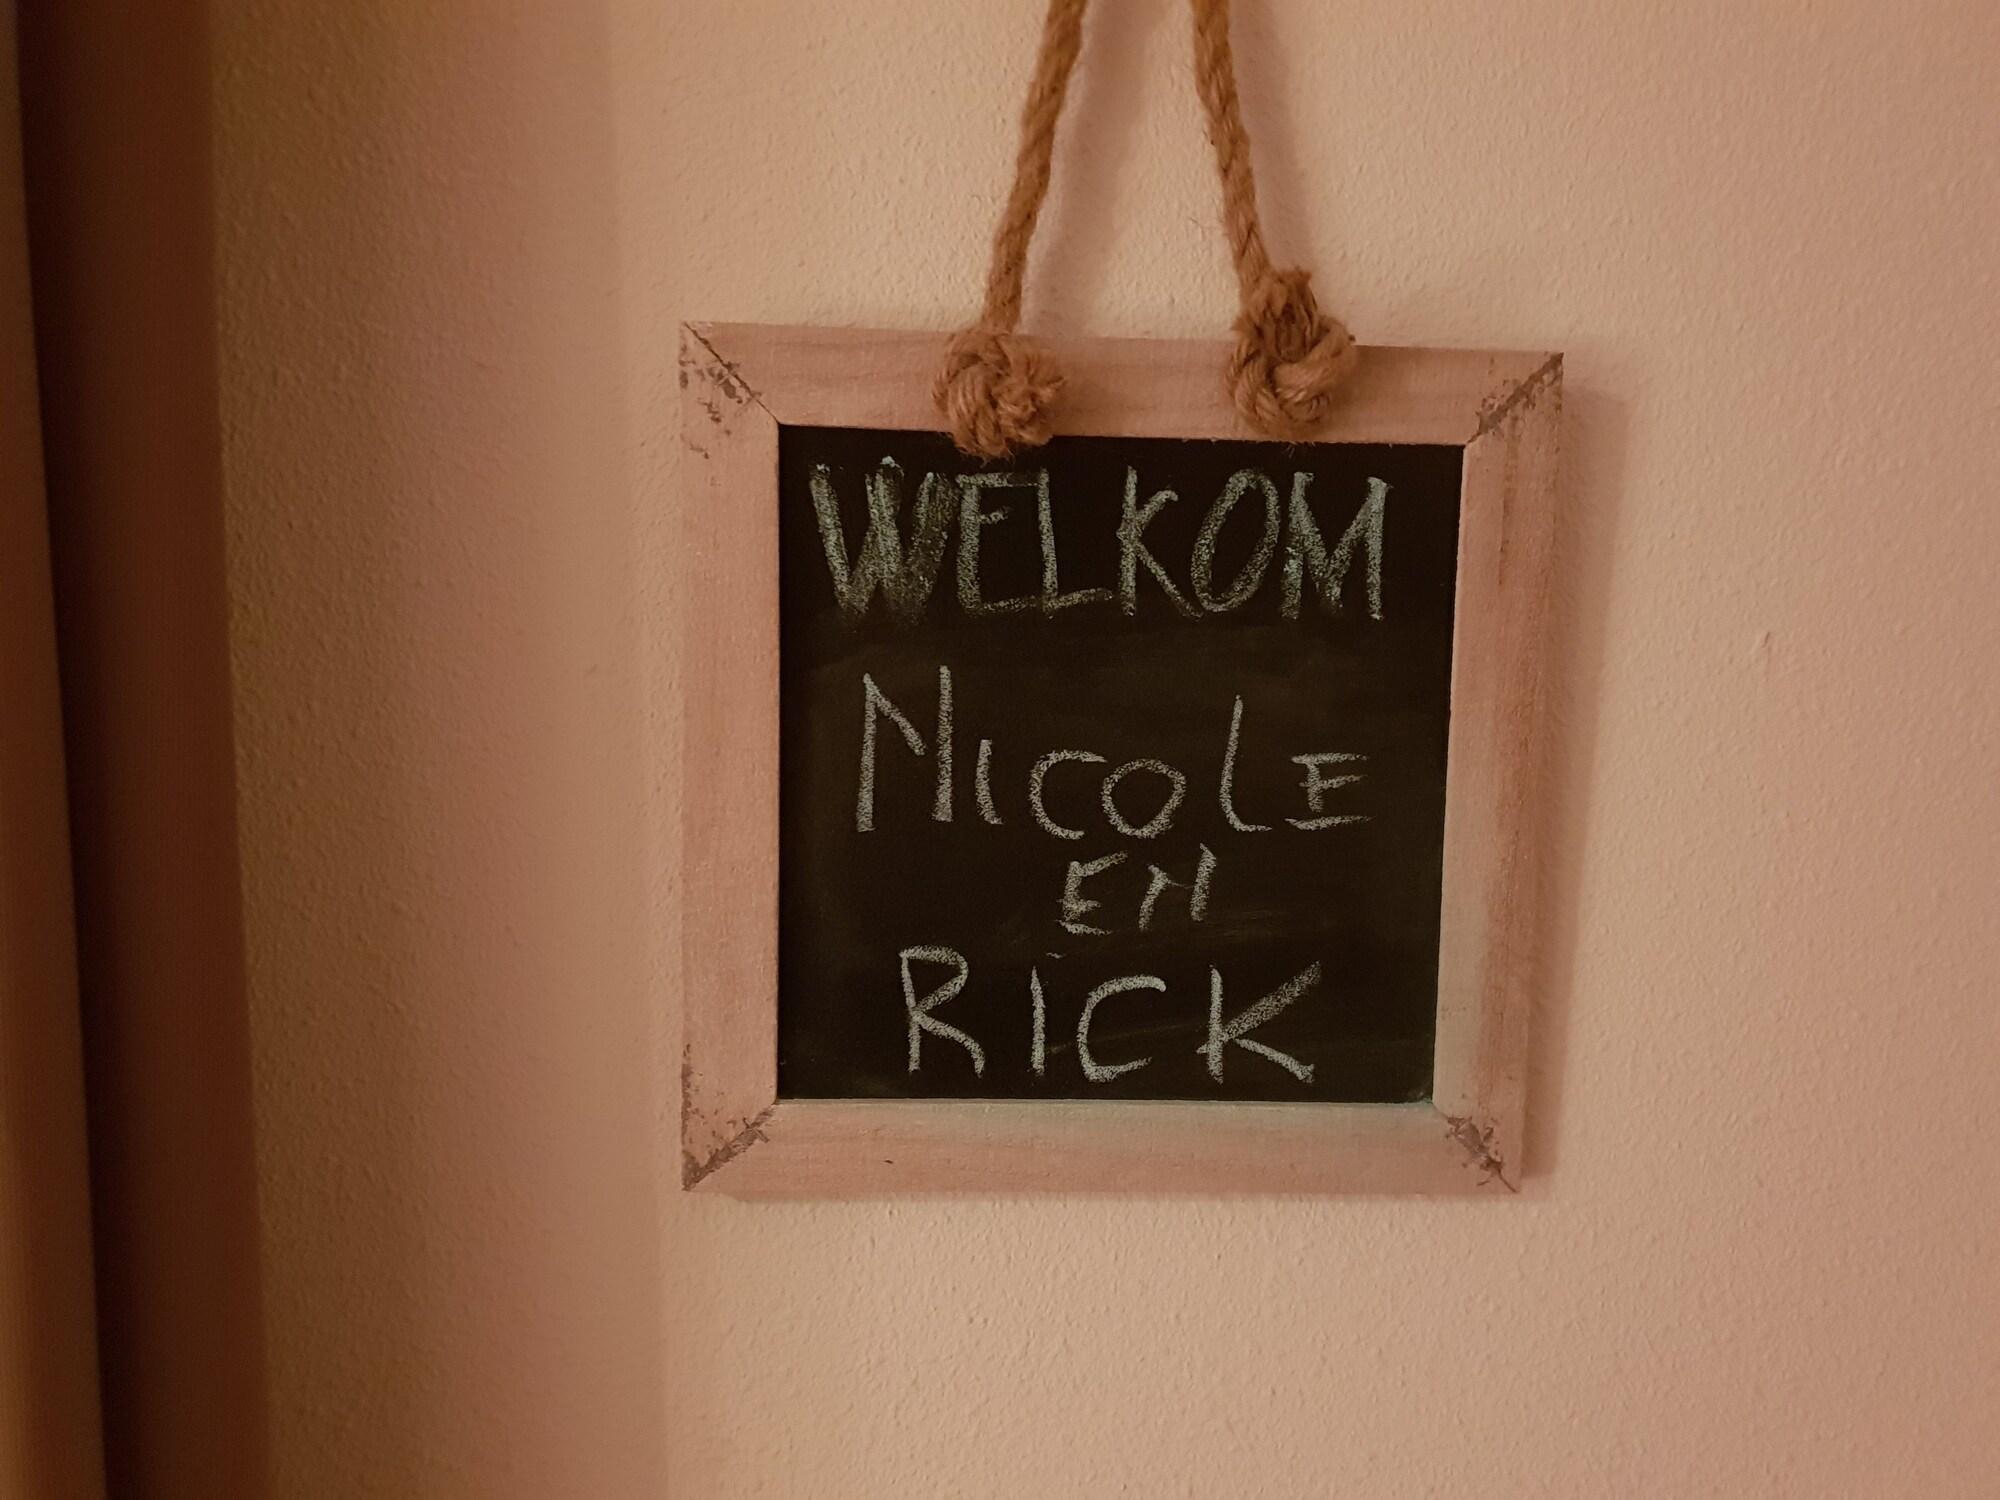 WELKOM
NicolE
EN
RICK